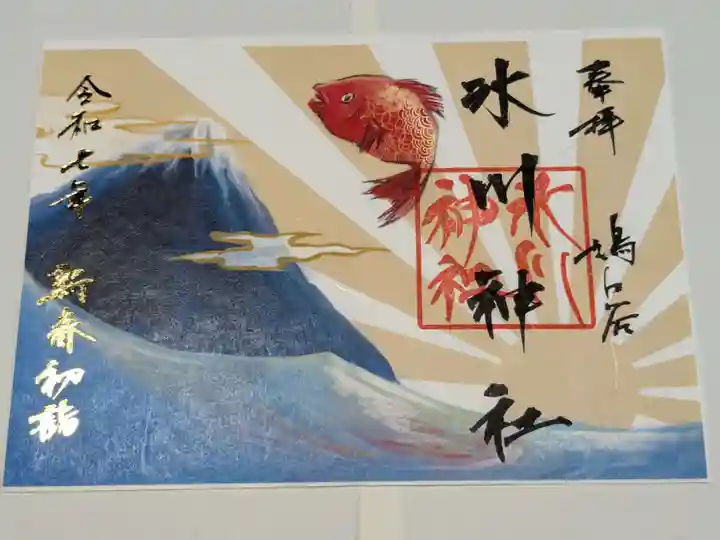 奉拝
鳩ヶ谷
氷川神社
氷川
神社
令和七年
新春初詣